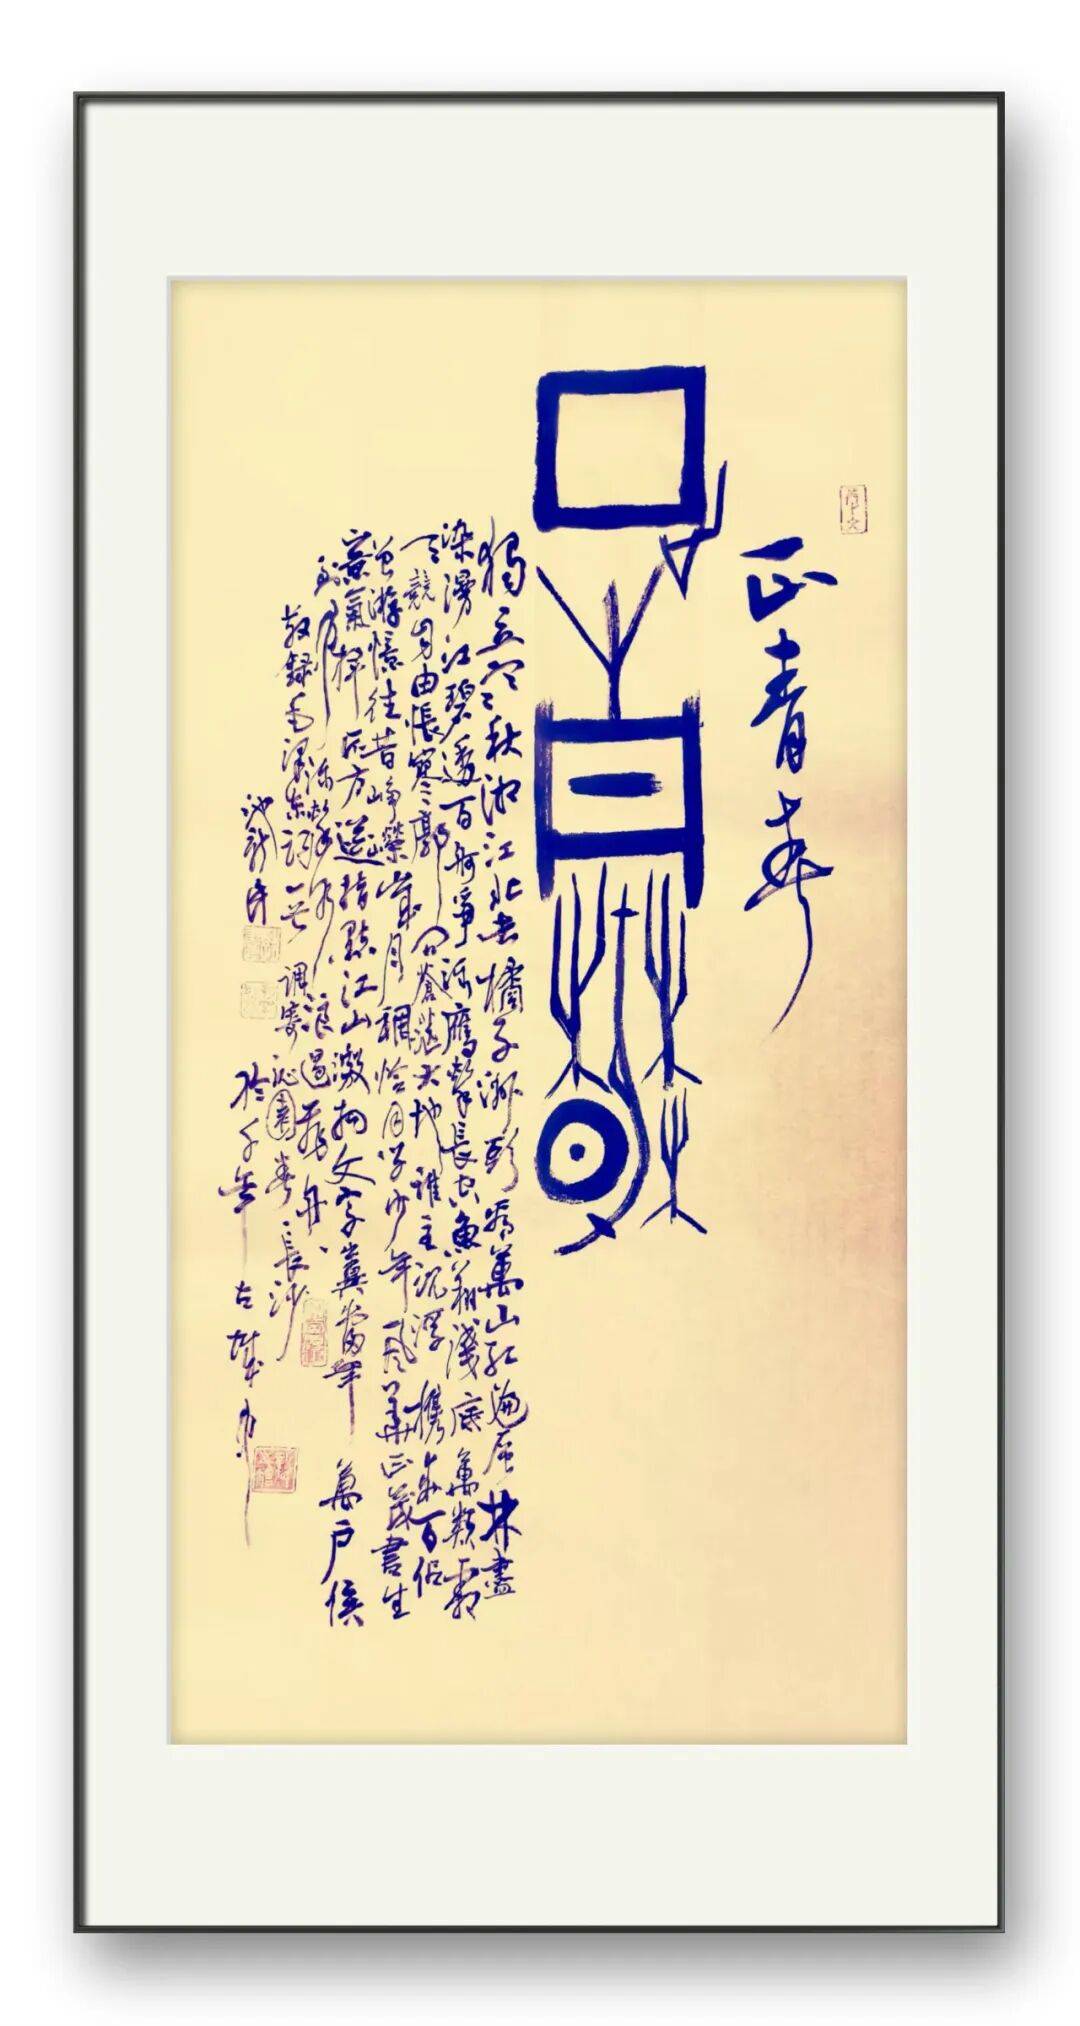 正青春
正青春
獨立寒秋湘江北去橘子洲頭看萬山紅遍层林盡
染漫江碧透百舸爭流鹰擊長空魚翔淺底萬類霜
天競自由悵寥廓问蒼茫大地誰主沉浮攜來百侣
曾游憶往昔崢嶸歲月稠恰同学少年風華正茂書生
意氣揮斥方遒指點江山激揚文字糞當年萬户侯
到中流擊水浪遏飛舟
敬録毛澤東詞一首調寄沁園春長沙
於千年古城